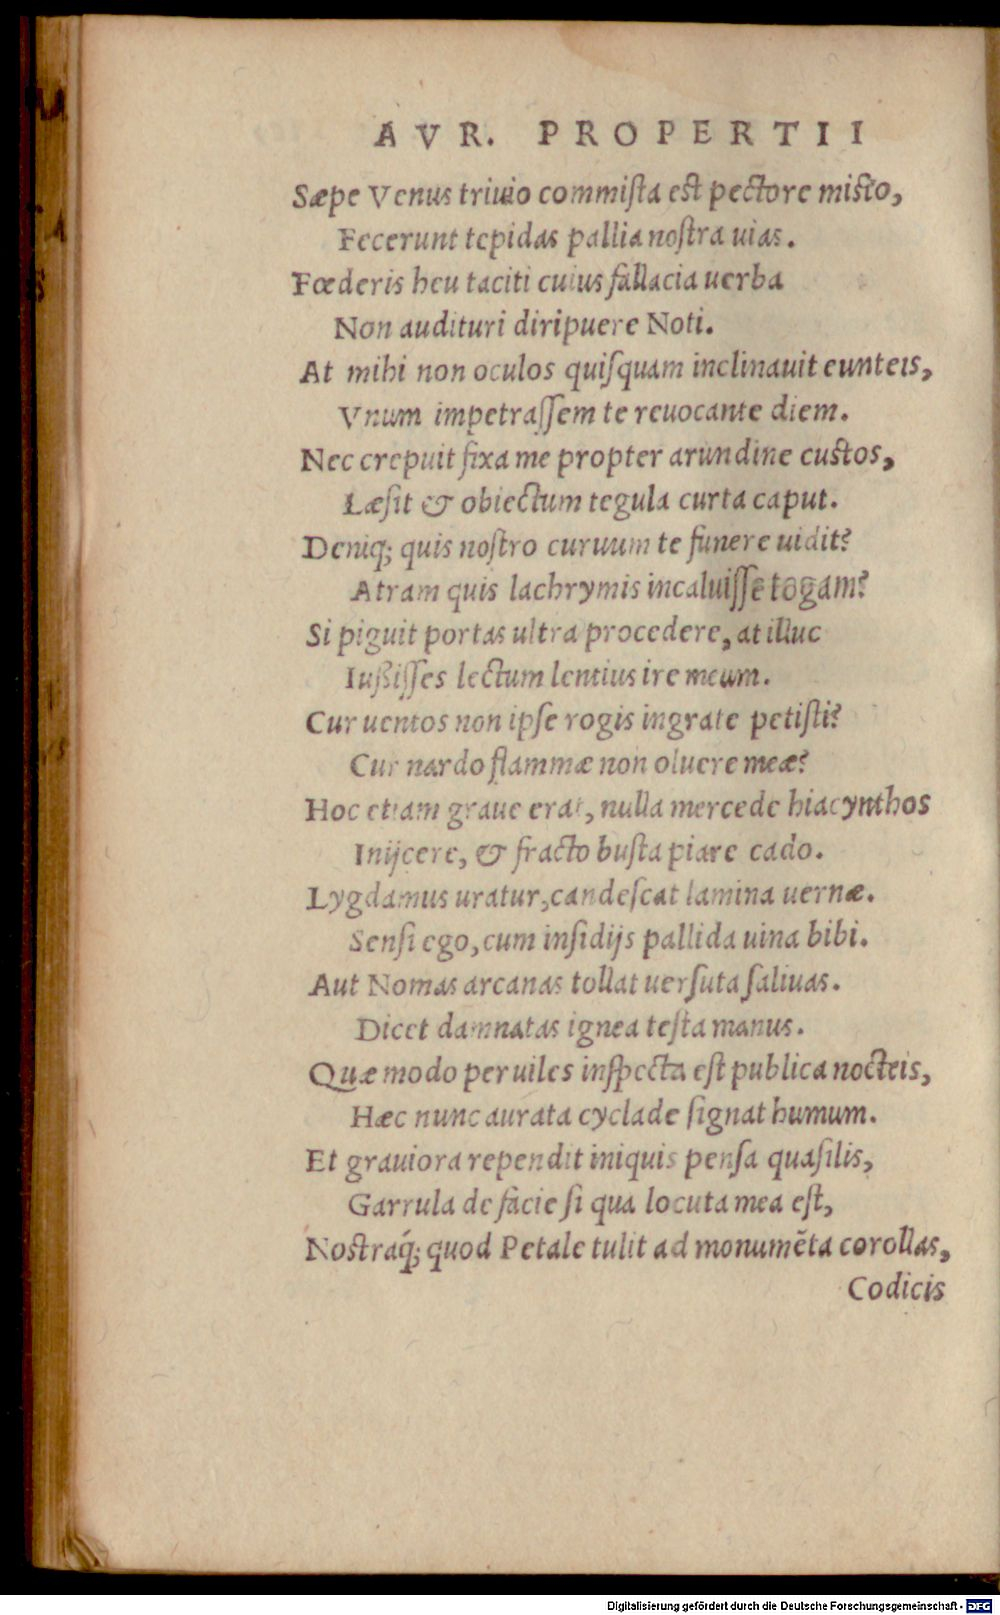 AVR. PROPERTII
Sæpe Venus triuio commiſta est pectore misto,
Fecerunt tepidas pallia noſtra uias.
Fœderis heu taciti cuius fallacia uerba
Non audituri diripuere Noti.
At mihi non oculos quiſquam inclinauit eunteis,
Vnum impetraſſem te reuocante diem.
Nec crepuit fixa me propter arundine custos,
Læſit & obiectum tegula curta caput.
Deniq; quis noſtro curuum te funere uidit?
Atram quis lachrymis incaluiſſe togam?
Si piguit portas ultra procedere, at illuc
Iußiſſes lectum lentius ire meum.
Cur uentos non ipſe rogis ingrate petiſti?
Cur nardo flammæ non oluere meæ?
Hoc etiam graue erat, nulla mercede hiacynthos
Inijcere, & fracto buſta piare cado.
Lygdamus uratur, candeſcat lamina uernæ.
Senſi ego, cum inſidijs pallida uina bibi.
Aut Nomas arcanas tollat uerſuta ſaliuas.
Dicet damnatas ignea teſta manus.
Quæ modo per uiles inſpecta eſt publica nocteis,
Hæc nunc aurata cyclade ſignat humum.
Et grauiora rependit iniquis penſa quaſilis,
Garrula de facie ſi qua locuta mea eſt,
Nostraq́; quod Petale tulit ad monumẽta corollas,
Codicis
Digitalisierung gefördert durch die Deutsche Forschungsgemeinschaft - DFG